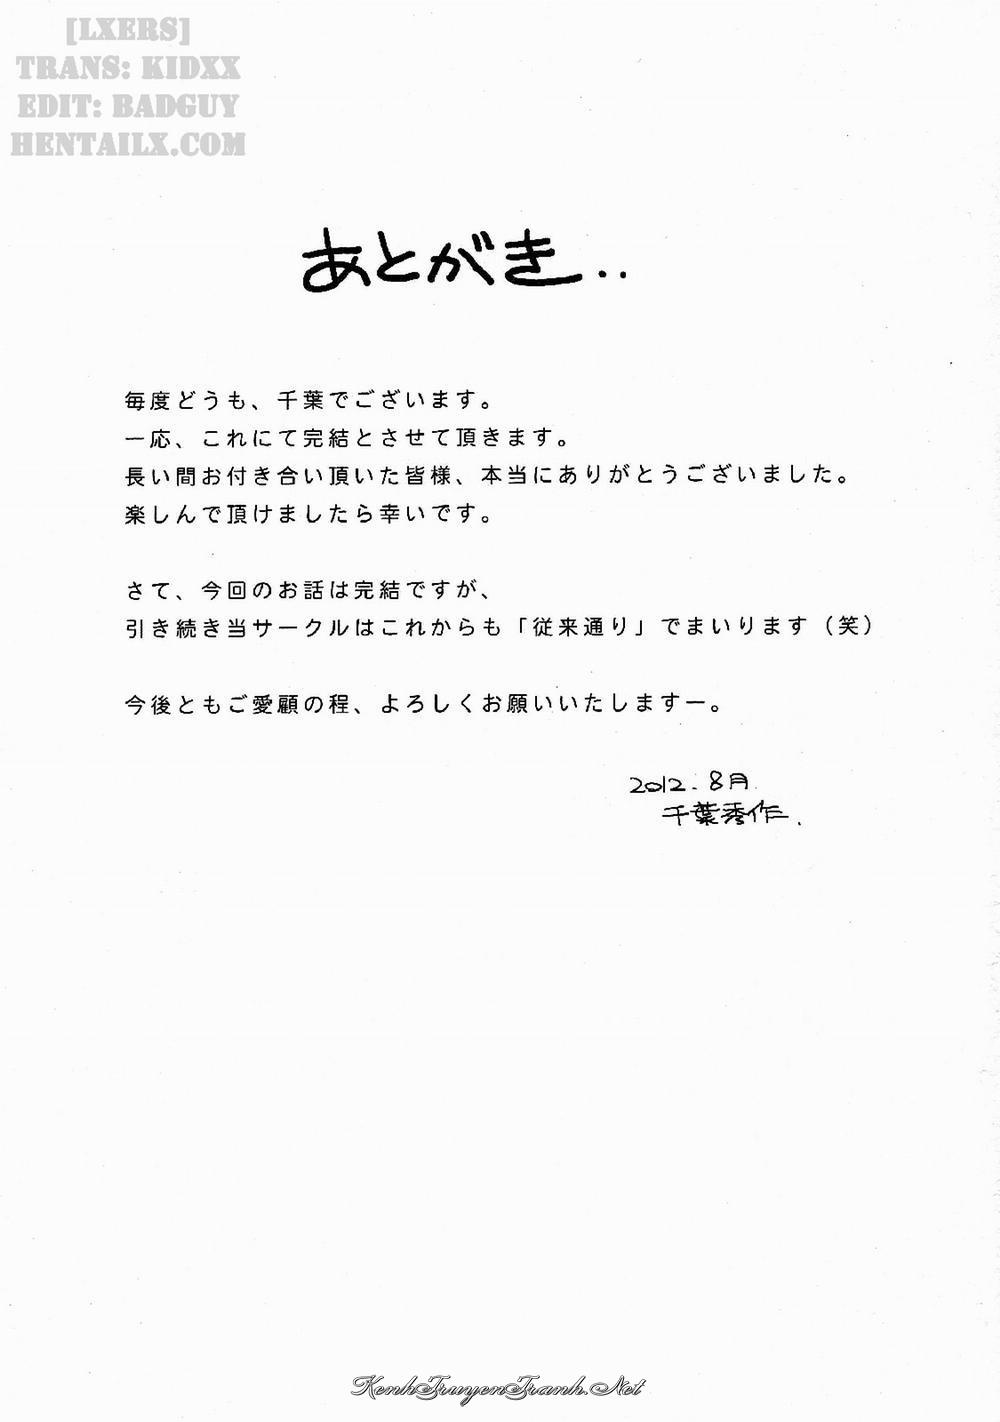 [LXERS]
TRANS: KIDXX
EDIT: BADGUY
HENTAILX.COM
あとがき..
毎度どうも、千葉でございます。
一応、これにて完結とさせて頂きます。
長い間お付き合い頂いた皆様、本当にありがとうございました。
楽しんで頂けましたら幸いです。
さて、今回のお話は完結ですが、
引き続き当サークルはこれからも「従来通り」でまいります（笑）
今後ともご愛顧の程、よろしくお願いいたしますー。
2012.8月
千葉秀作.
KenhTruyenTranh.Net